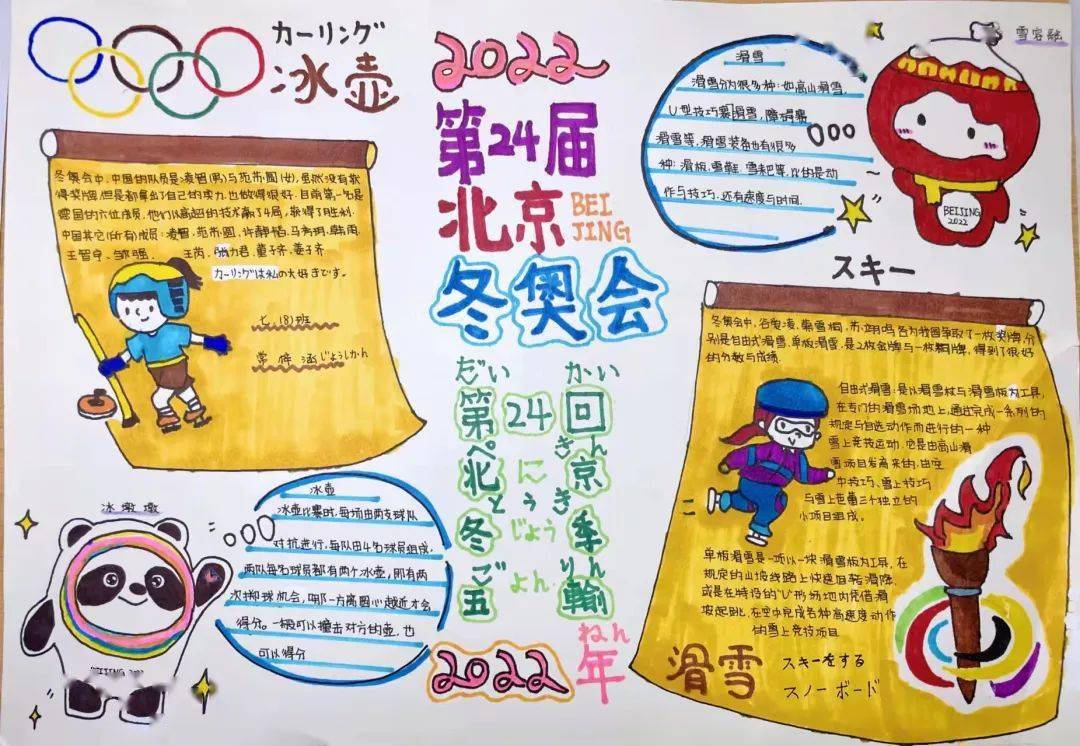 カーリング
冰壶
冬奥会中,中国的队员是凌智(男)与范苏圆(女),虽然没有获
得奖牌,但是都拿出了自己的实力,也做得很好.目前第一名是
瑞国的六位成员,他们以高超的技术赢了4局,获得了胜利.
中国其它(所有)成员:凌智,范苏圆,许静韬,马秀玥,韩雨,
王智宇,邹强, 王芮,张力君,董子齐,姜子齐
カーリングは私の大好きです。
七.(8)班
じょうしかん
冰墩墩
BEIJING 2022
冰壶
冰壶比赛时,每场由两支球队
对抗进行,每队由4名球员组成.
两队每名球员都有两个冰壶,那有两
次掷球机会,哪一方离圆心越近才会
得分。一般可以撞击对方的壶,也
可以得分
2022
第24届
北京
BEI
JING
冬奥会
だい かい
第24回
ぺ きん
北に京
とうき
冬じょう季
ご よん りん
五 輪
2022
ねん
年
滑雪
滑雪分为很多种:如高山滑雪,
U型技巧赛滑雪,障碍赛
滑雪等,滑雪装备也有很多
种:滑板,雪鞋,雪耙等,比的是动
作与技巧,还有速度与时间.
雪容融
BEIJING
2022
スキー
冬奥会中,谷爱凌,蔡雪桐,苏翊鸣各为我国争取了一枚奖牌,分
别是自由式滑雪,单板滑雪,是2枚金牌与一枚铜牌,得到了很好
的分数与成绩
自由式滑雪:是以滑雪杖与滑雪板为工具,
在专门的滑雪场地上,通过完成一系列的
规定与自选动作而进行的一种
雪上竞技运动.它是由高山滑
雪项目发高来的,由空
中技巧、雪上技巧
与雪上芭蕾三个独立的
小项目组成。
单板滑雪是一项以一块滑雪板为工具,在
规定的山坡线路上快速回转滑降,
或是在特设的"U"形场地内凭借滑
坡起跳,在空中完成各种高难度动作
的雪上竞技项目
滑雪
スキーをする
スノーボード